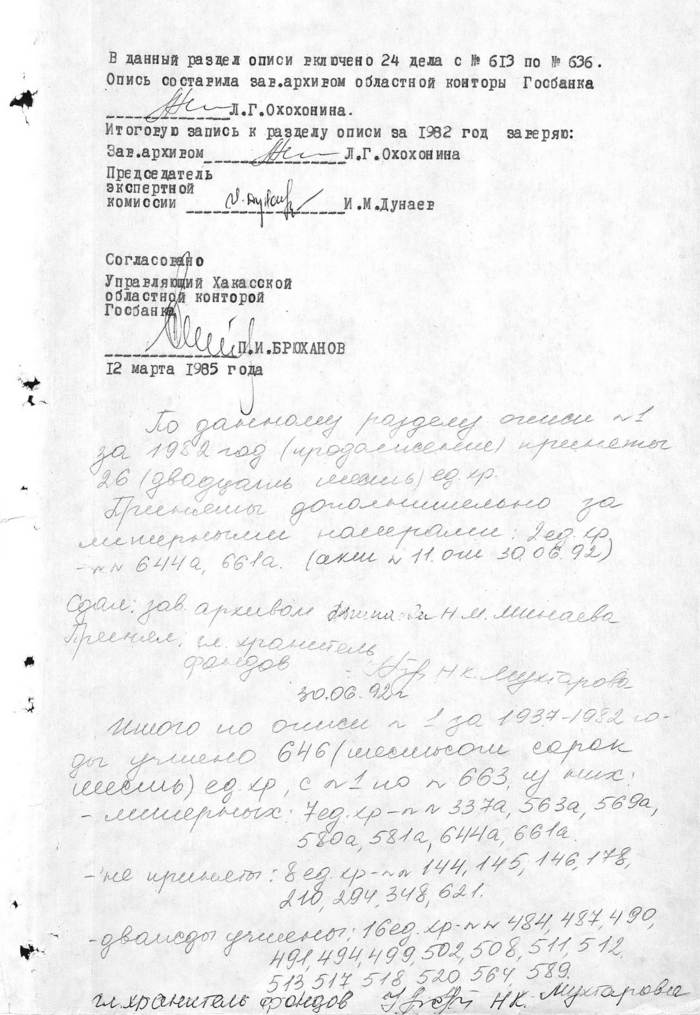 В данный раздел описи включено 24 дела с № 613 по № 636.
Опись составила зав.архивом областной конторы Госбанка
Л.Г.Охохонина.
Итоговую запись к разделу описи за 1982 год заверяю:
Зав.архивом Л.Г.Охохонина
Председатель
экспертной
комиссии И.М.Дунаев
Согласовано
Управляющий Хакасской
областной конторой
Госбанка
П.И.БРЮХАНОВ
12 марта 1985 года
По данному разделу описи №1
за 1982 год (продолжение) приняты
26 (двадцать шесть) ед.хр.
Приняты дополнительно за
литерными номерами: 2 ед.хр
- №№ 644а, 661а. (акт №11 от 30.06.92)
Сдал: зав. архивом Н.М. Минаева
Принял: гл. хранитель
фондов Н.К. Мухтарова
30.06.92г
Итого по описи №1 за 1937-1982 го-
ды учтено 646 (шестьсот сорок
шесть) ед.хр, с №1 по №663, из них:
- литерных: 7 ед.хр - №№ 337а, 563а, 569а,
580а, 581а, 644а, 661а.
- не приняты: 8 ед.хр - №№ 144, 145, 146, 178,
210, 294, 348, 621.
- дважды учтены: 16 ед.хр - №№ 484, 487, 490,
491, 494, 499, 502, 508, 511, 512,
513, 517, 518, 520, 564, 589.
гл. хранитель фондов Н.К. Мухтарова